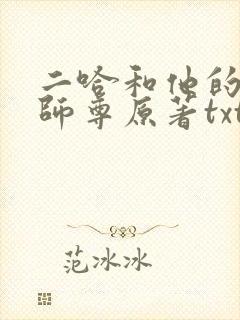 二哈和他的
師尊原著txt
范冰冰